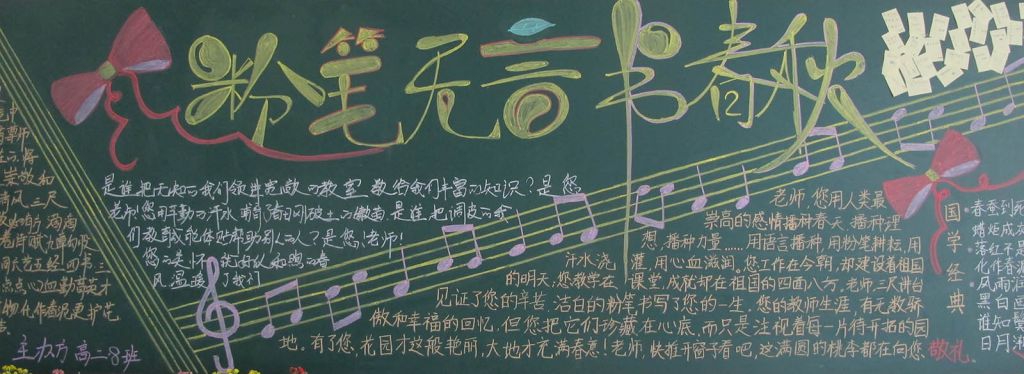 粉笔无音书春秋
是谁把无知的我们领进宽敞的教室 教给我们丰富的知识?是您
老师!您用辛勤的汗水 哺育了刚破土的嫩苗 是谁把调皮的我
们教育成能体贴帮助别人的人?是您,老师!
您的关怀 就好似和煦的春
风 温暖了我们
老师,您用人类最
崇高的感情播种春天,播种理
想,播种力量……用语言播种,用粉笔耕耘,用
汗水浇灌,用心血滋润。您工作在今朝,却建设着祖国
的明天,您教学在课堂,成就却在祖国的四面八方,老师,三尺讲台
见证了您的辛苦,洁白的粉笔书写了您的一生,您的教师生涯,有无数骄
傲和幸福的回忆,但您把它们珍藏在心底,而只是注视着每一片待开拓的园
地。有了您,花园才这般艳丽,大地才充满春意!老师,快推开窗子看吧,这满园的桃李都在向您 敬礼。
国学经典
春蚕到死
蜡炬成灰
落红不是
化作春泥
风雨润
黑白画
谁知
日月
三尺
四书三
点点心血勤育英才
化作春泥更护花
高二8班